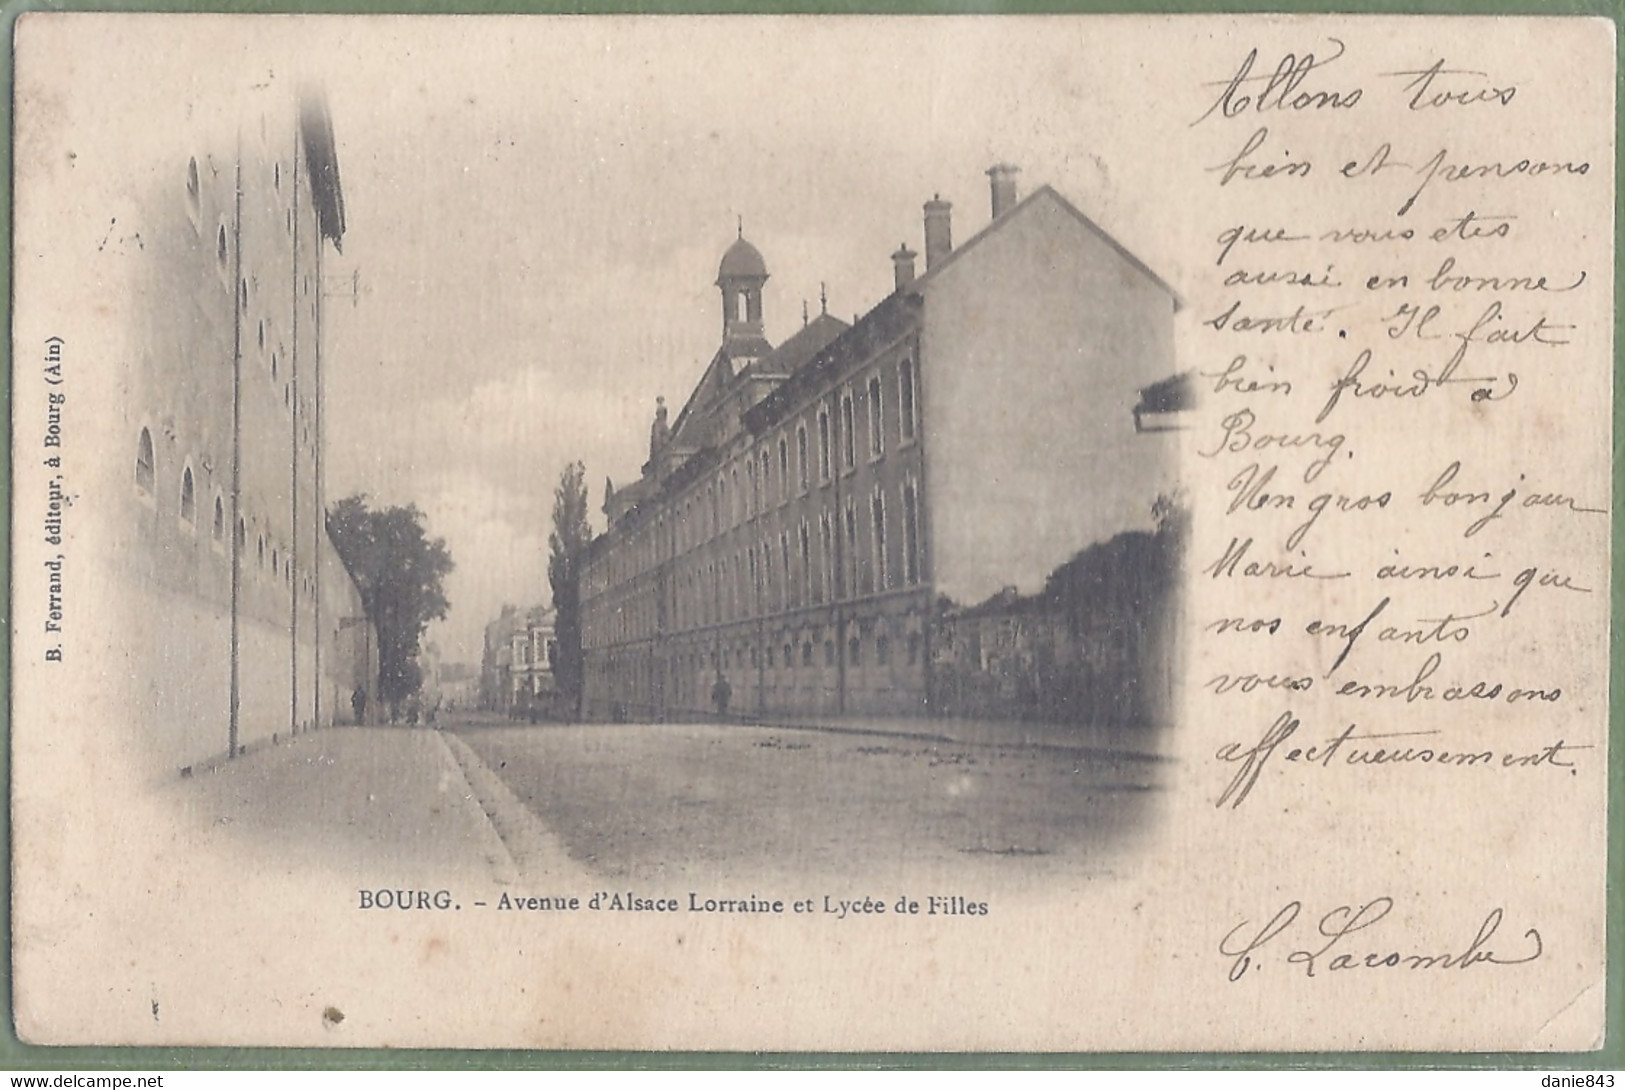 Allons tous
bien et pensons
que vous etes
aussi en bonne
santé. Il fait
bien froid à
Bourg.
Un gros bonjour
Marie ainsi que
nos enfants
vous embrassons
affectueusement.
C. Lacombe
B. Ferrand, éditeur, à Bourg (Ain)
BOURG. - Avenue d'Alsace Lorraine et Lycée de Filles
delcampe.net
danie843